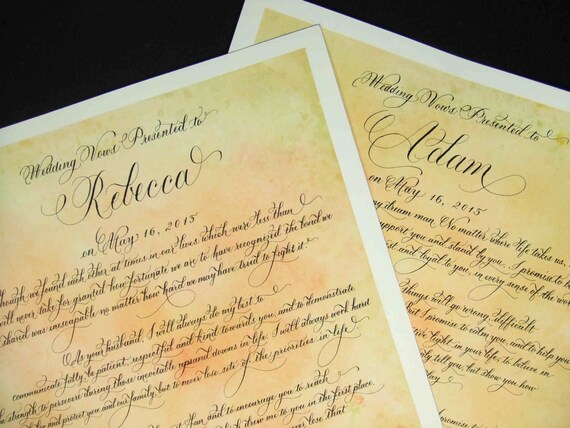 Wedding Vows Presented to
Rebecca
on May 16, 2015
though we found each other at times in our lives which were less than
will never take for granted how fortunate we are to have recognized the bond we
shared was inescapable no matter how hard we may have tried to fight it.
As your husband, I will always do my best to
communicate fully, be patient, respectful and kind towards you, and to demonstrate
strength to persevere during those inevitable ups and downs in life. I will always work hard
and protect you and our family, but to never lose site of the priorities in life
and to encourage you to reach
drew me to you in the first place,
lose that
Wedding Vows Presented to
Adam
on May 16, 2015
my dream man. No matter where life takes us,
support you and stand by you. I promise to be
and loyal to you, in every sense of the word
Things will go wrong, difficult
that I promise to calm you, and to help you
light in your life, to believe in
tell you but show you how
day
I promise to